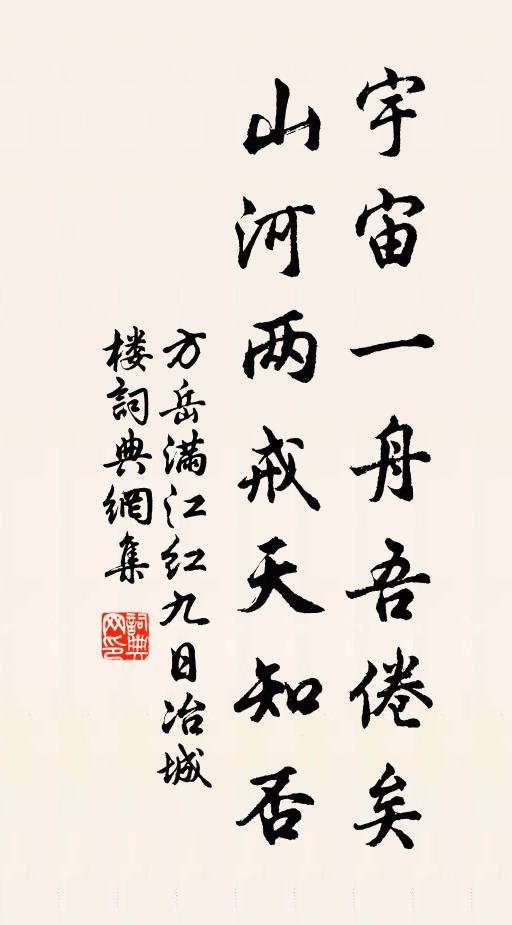 宇宙一舟吾倦矣
山河两戒天知否
方岳满江红九日冶城
楼詞典網集
詞典网印